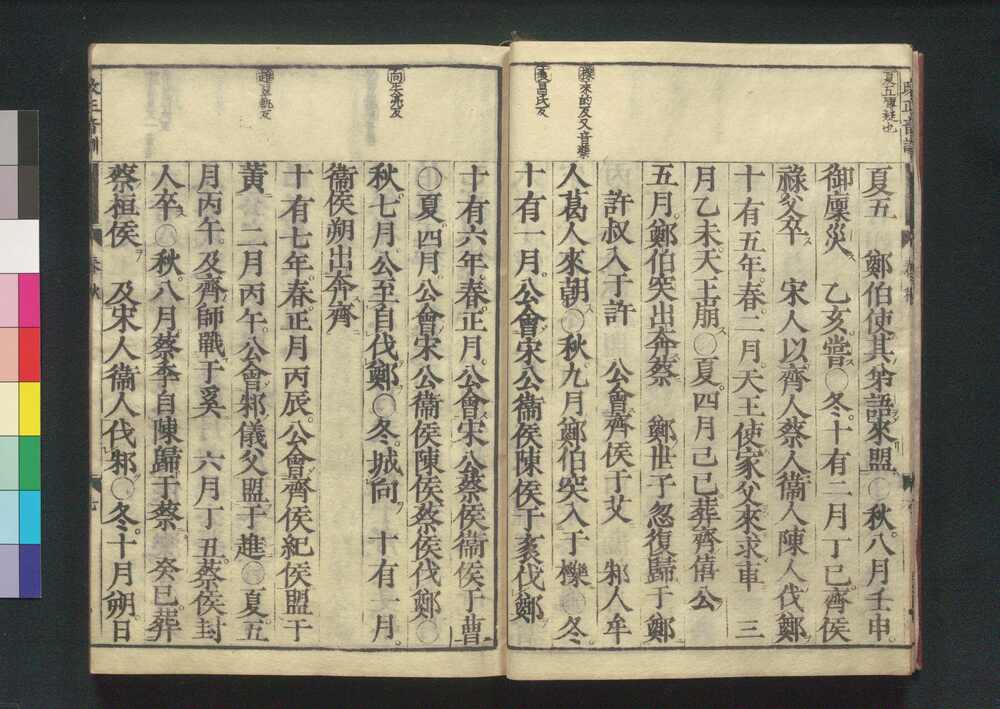 夏五　鄭伯使其弟語來盟○秋八月壬申
御廩災　乙亥嘗○冬十有二月丁巳齊侯
祿父卒　宋人以齊人蔡人衞人陳人伐鄭
十有五年春二月天王使家父來求車　三
月乙未天王崩○夏四月己巳葬齊僖公
五月鄭伯突出奔蔡　鄭世子忽復歸于鄭
許叔入于許　公會齊侯于艾　邾人牟
人葛人來朝○秋九月鄭伯突入于櫟○冬
十有一月公會宋公衞侯陳侯于袲伐鄭
櫟來的反又音樂
袲昌氏反
十有六年春正月公會宋公蔡侯衞侯于曹
○夏四月公會宋公衞侯陳侯蔡侯伐鄭○
秋七月公至自伐鄭○冬城向　十有一月
衞侯朔出奔齊
十有七年春正月丙辰公會齊侯紀侯盟于
黃　二月丙午公會邾儀父盟于趡○夏五
月丙午及齊師戰于奚　六月丁丑蔡侯封
人卒○秋八月蔡季自陳歸于蔡　癸巳葬
蔡桓侯　及宋人衞人伐邾○冬十月朔日
向失亮反